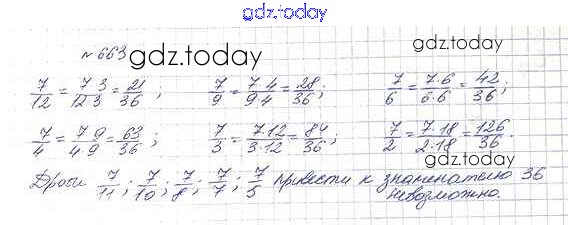 gdz.today
№663
gdz.today gdz.today
7/12 = 7 3/12 3 = 21/36 ; 7/9 = 7·4/9·4 = 28/36 ; 7/6 = 7·6/6·6 = 42/36 ;
7/4 = 7 9/4·9 = 63/36 ; 7/3 = 7·12/3·12 = 84/36 ; 7/2 = 7·18/2·18 = 126/36 .
gdz.today
Дроби 7/11 ; 7/10 ; 7/8 ; 7/7 ; 7/5 привести к знаменателю 36
невозможно.